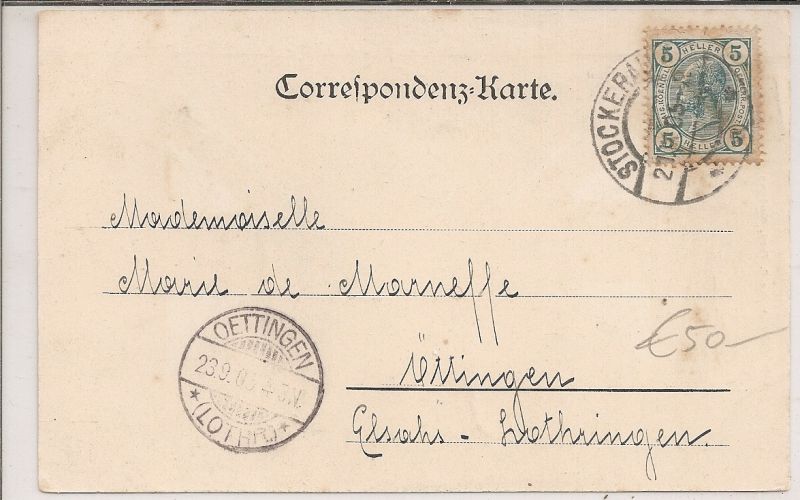 Correspondenz-Karte.
STOCKERAU
5 HELLER 5
5 HELLER 5
Mademoiselle
Marie de Marneffe
€50-
OETTINGEN
23.9.0
* (LOTHR) *
Öttingen
Elsahs - Lothringen.